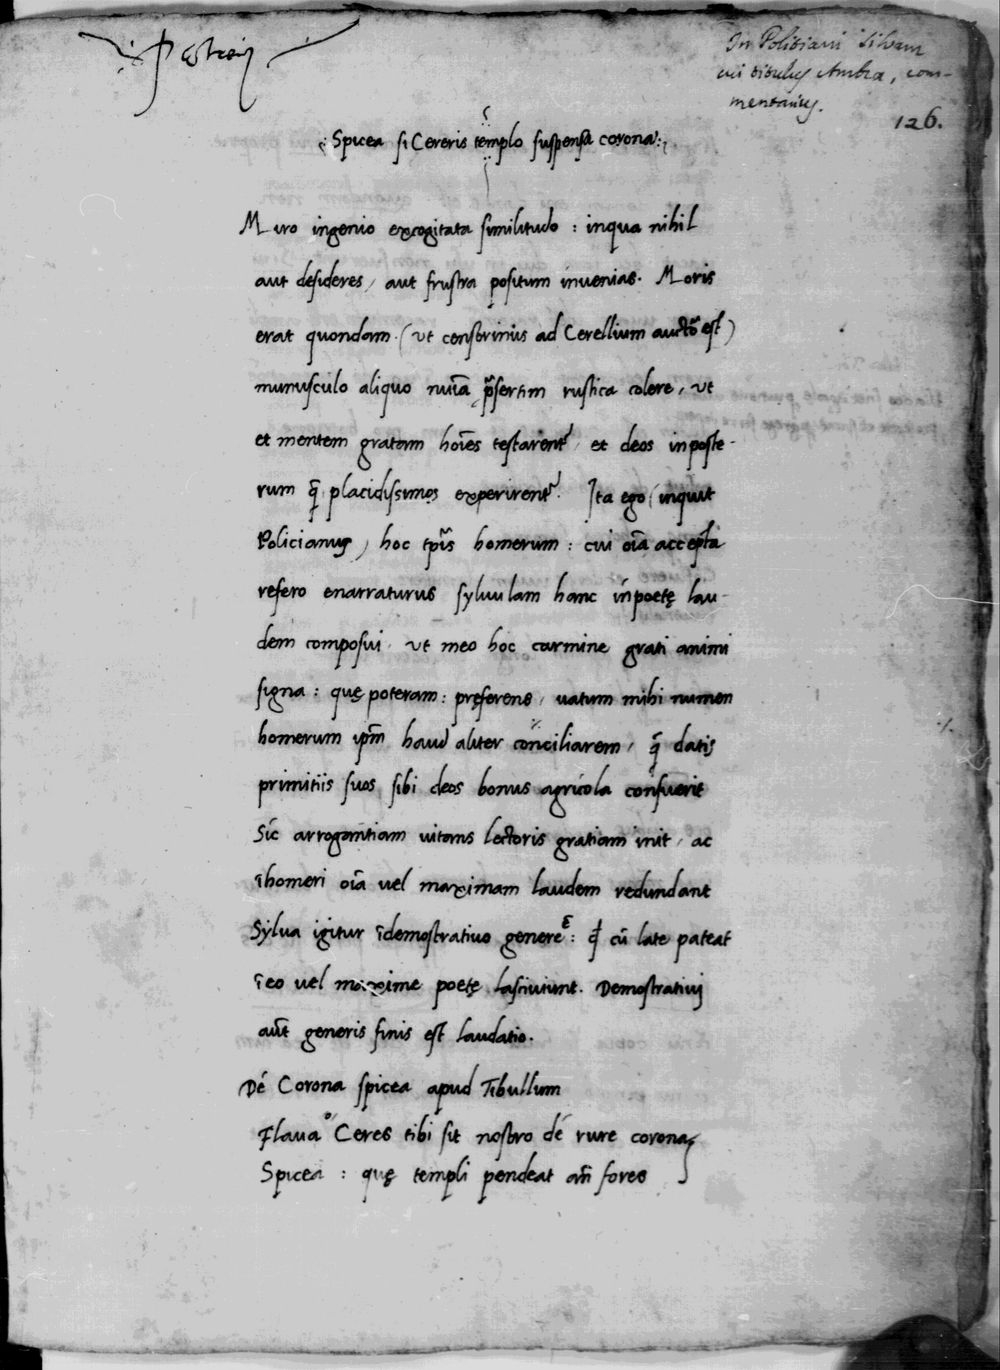 In Politiani Silvam
cui titulus Ambra, com-
mentarius.
126.
Spicea si Cereris templo suspensa corona:
Miro ingenio excogitata similitudo : inqua nihil
aut desideres, aut frustra positum inuenias. Moris
erat quondam (ut censorinus ad Cerellium auctõ est)
munusculo aliquo nuĩa p̃sertim rustica colere, ut
et mentem gratam hoĩes testarent᷑, et deos inposte-
rum q̃ placidissimos experirent᷑. Ita ego (inquit
Policianus) hoc tp̃is homerum : cui oĩa accepta
refero enarraturus syluulam hanc inpoetę lau-
dem composui, ut meo hoc carmine grati animi
signa : quę poteram : pręferens, uatum mihi numen
homerum ip̃m haud aliter conciliarem, q̃ datis
primitiis suos sibi deos bonus agricola consuerit
Sic arrogantiam uitans lectoris gratiam init, ac
ĩhomeri oĩa uel maximam laudem redundant
Sylua igitur ĩdemostratiuo genere ẽ : qđ cũ late pateat
ĩeo uel maxime poetę lasciuiunt. Demostratiuj
aũt generis finis est laudatio.
De Corona spicea apud Tibullum
Flaua Ceres tibi sit nostro de rure corona
Spicea : quę templi pendeat añ fores